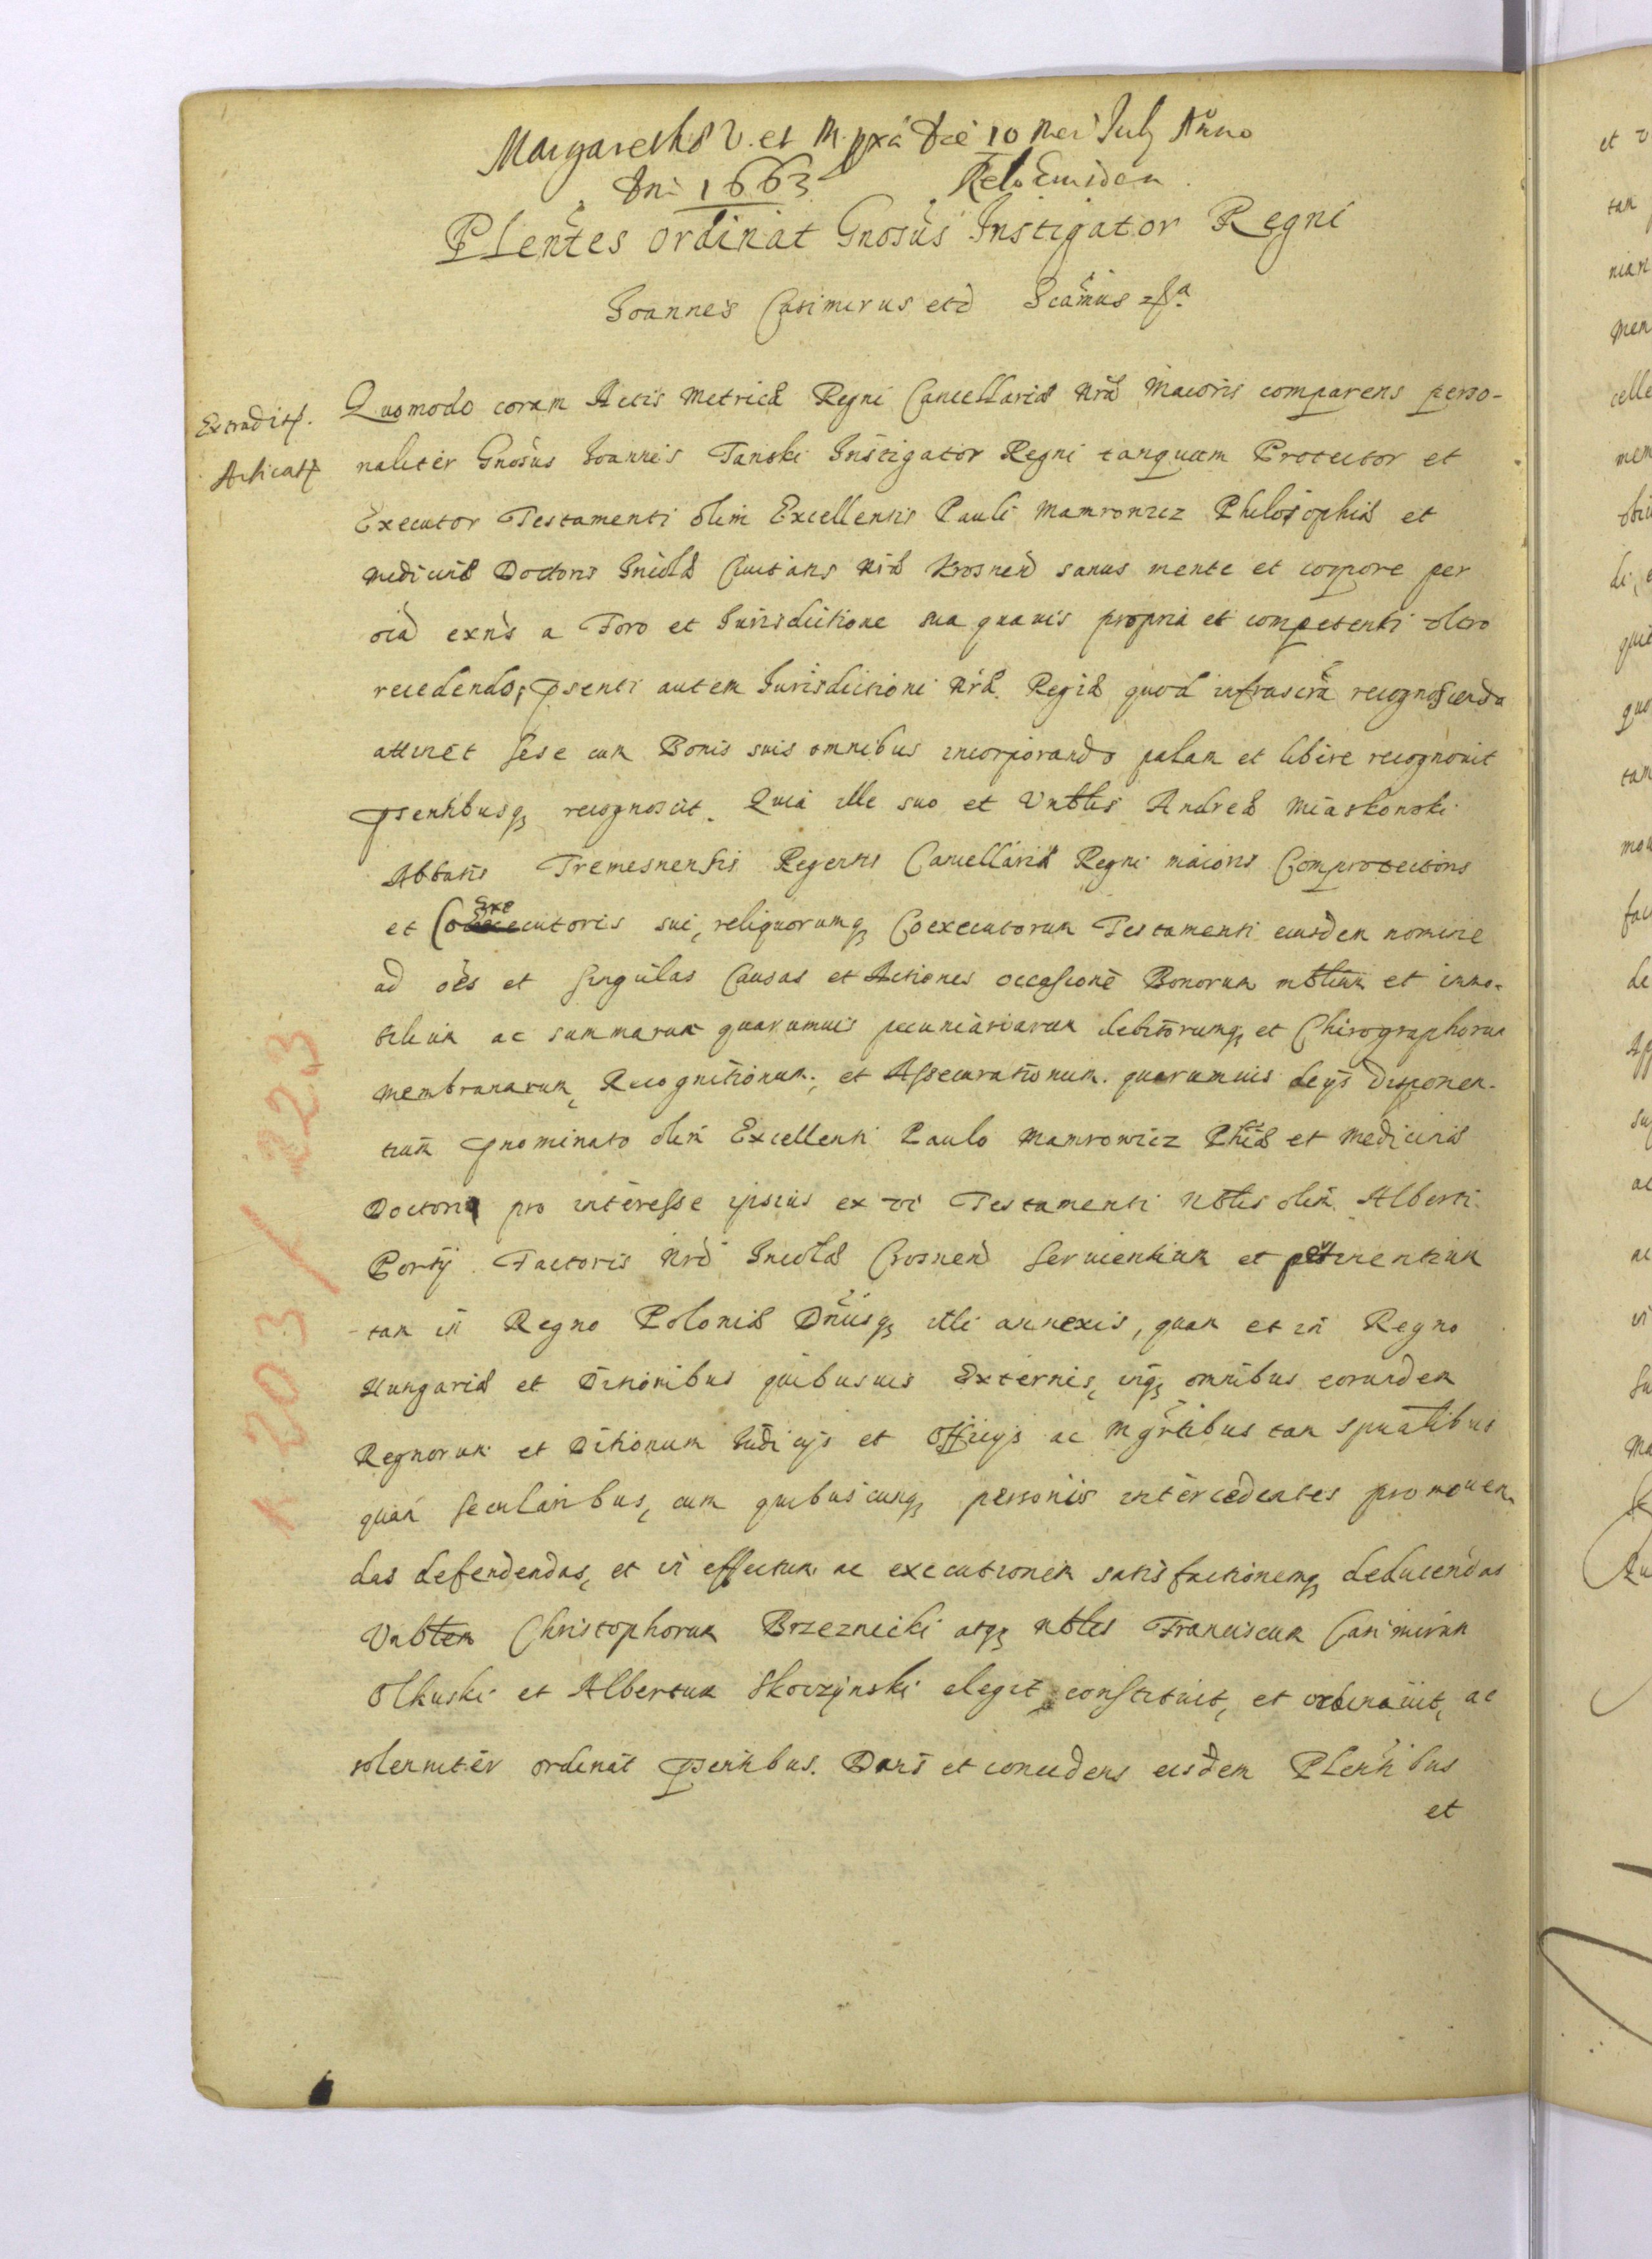 Margarethæ V. et M. pxa die 10 Mei July Anno
Dni 1663
Plentes ordinat Gnosus Instigator Regni
Joannes Casimirus etc Scamus
Quomodo coram Actis Metricæ Regni Cancellariæ nræ Maioris comparens perso-
Extradit.
naliter Gnosus Joannes Tanski Instigator Regni tanquam Protector et
Executor Testamenti olim Excellentis Pauli Mamrowicz Philosophiæ et
Medicinæ Doctoris Incolæ Civitatis nræ Krosnen sanus mente et corpore per
oia exns a Foro et Jurisdictione sua quavis propria et competenti
recedendo, psenti autem Jurisdictioni nræ Regiæ quod infrascra recognoscenda
attinet sese cum Bonis suis omnibus incorporando palam et libere recognovit
psentibusq recognoscit. Quia ille suo et Vnblis Andreæ Miaskowski
Abbatis Tremesnensis Regentis Cancellariæ Regni maioris Comprotectoris
et Coexecutoris sui, reliquorumq Coexecutorum Testamenti eiusdem nomine
ad oes et singulas Causas et Actiones occasione Bonorum mblium et immo-
bilium ac summarum quarumuis pecuniariarum debitorumq et Chirographorum
membranarum, Recognitionum, et Assecurationum quarumuis de ijs disponen-
tium pnominato olim Excellenti Paulo Mamrowicz Phiæ et Medicinæ
Doctori pro interesse ipsius ex vi Testamenti Nblis olim Alberti
Portij Factoris nri Incolæ Crosnen seruientium et pertinentium
tam in Regno Poloniæ Dnijsq illi annexis, quam et in Regno
Hungariæ et Ditionibus quibusuis Externis, inq omnibus eorundem
Regnorum et Ditionum Judicijs et Officijs ac Mgrtibus tam spualibus
quam secularibus, cum quibuscunq personis intercedentes promouen-
das defendendas, et in effectum ac executionem satisfactionemq deducendas
Vnblem Christophorum Brzeznicki atq Nbles Franciscum Casimirum
Olkuski et Albertum Skoczynski elegit constituit, et ordinauit, ac
solenniter ordinat psentibus. Dans et concedens eisdem Plentibus
et
K 203 / 223